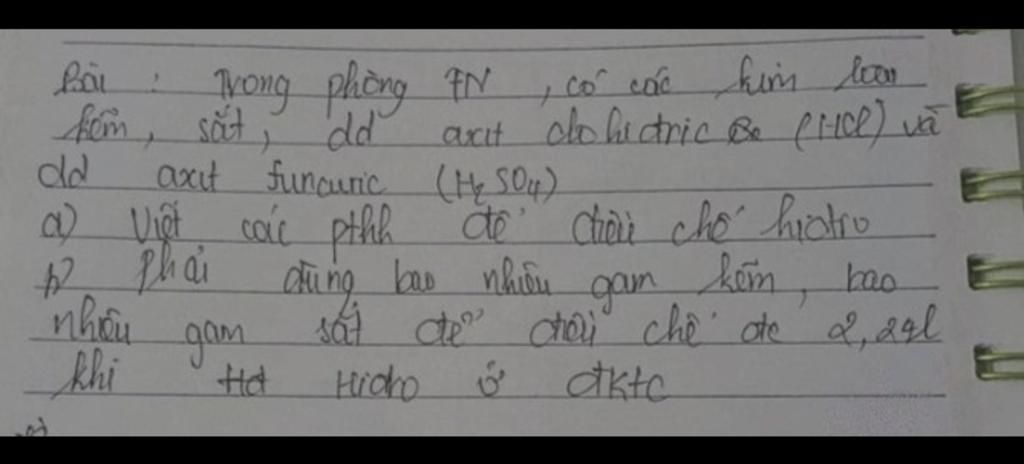 Bài : Trong phòng TN , có các kim loại
kẽm, sắt, dd axit clohiđric (HCl) và
dd axit sunfuric (H2SO4)
a) Viết các pthh để điều chế hiđro
b) Phải dùng bao nhiêu gam kẽm, bao
nhiêu gam sắt để điều chế đc 2,24l
khí Hiđro ở đktc